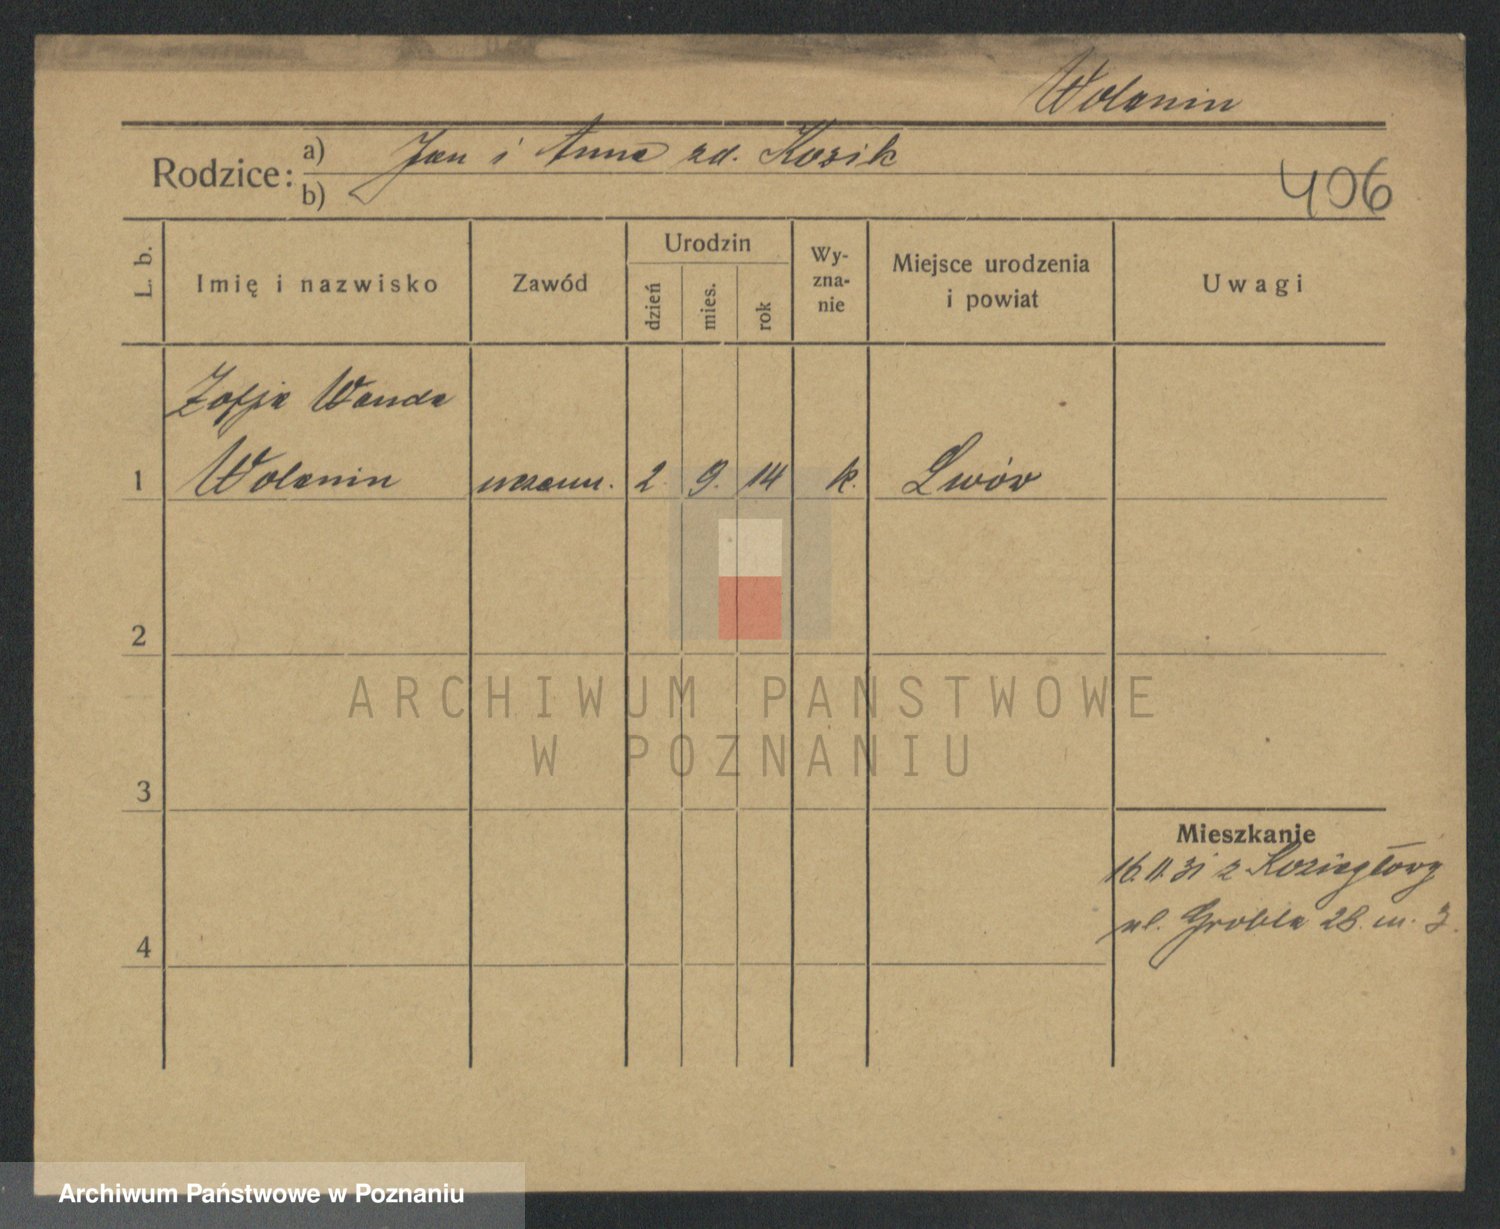 Wolanin
Rodzice: a) Jan i Anna zd. Kozik
b)
406
L. b.
Imię i nazwisko
Zawód
Urodzin
dzień
mies.
rok
Wy-
zna-
nie
Miejsce urodzenia
i powiat
Uwagi
Zofja Wanda
1 Wolanin uczenn. 2. 9. 14 k. Lwów
2
3
4
Mieszkanie
16.11.31 z Koziegłowy
ul. Grobla 28. m. 3.
ARCHIWUM PAŃSTWOWE
W POZNANIU
Archiwum Państwowe w Poznaniu